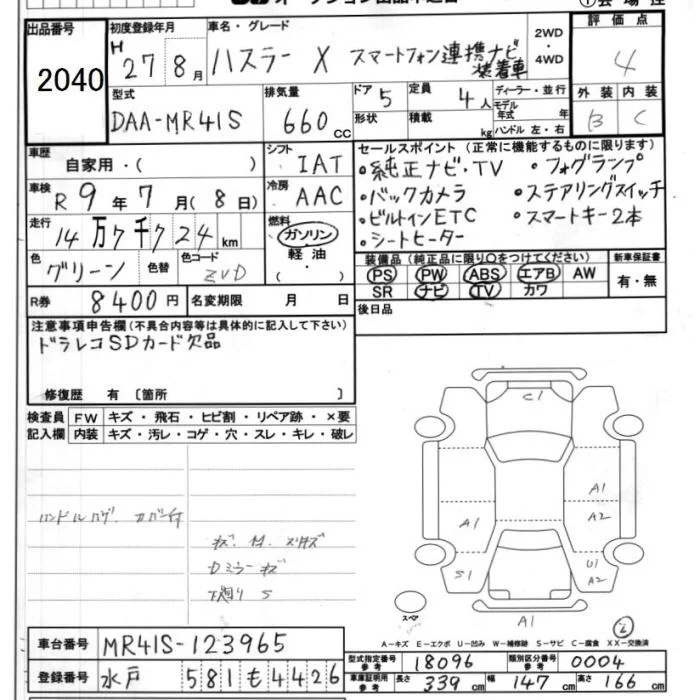 出品番号 2040
初度登録年月 H 27年 8月
車名・グレード ハスラー X スマートフォン連携ナビ装着車
2WD・4WD
評価点 4
外装 B 内装 C
型式 DAA-MR41S
排気量 660 cc
ドア 5 形状
定員 4人 積載 kg
ディーラー・並行
モデル年式 年
ハンドル 左・右
車歴 自家用・( )
シフト IAT
車検 R 9年 7月 (8日)
冷房 AAC
走行 14万7千724km
燃料 ガソリン 軽油 ・( )
色 グリーン 色替 色コード ZVD
R券 8400円 名変期限 月 日
セールスポイント (正常に機能するものに限ります)
・純正ナビ・TV ・フォグランプ
・バックカメラ ・ステアリングスイッチ
・ビルトインETC ・スマートキー2本
・シートヒーター
装備品(純正品に限り○をつけてください) 新車保証書
PS PW ABS エアB AW 有・無
SR ナビ TV カワ
後日品
注意事項申告欄(不具合内容等は具体的に記入して下さい)
ドラレコSDカード欠品
修復歴 有 〔箇所 〕
検査員記入欄 FW キズ・飛石・ヒビ割・リペア跡・×要
内装 キズ・汚レ・コゲ・穴・スレ・キレ・破レ
C1
A1
A2
A1
S1
U1
A2
A1
スペア
A-キズ E-エクボ U-凹み W-補修跡 S-サビ C-腐食 XX-交換済
車台番号 MR41S-123965
登録番号 水戸 581 も 4426
型式指定番号 参考 18096 類別区分番号 参考 0004
車庫証明用 参考 長さ 339cm 幅 147cm 高さ 166cm